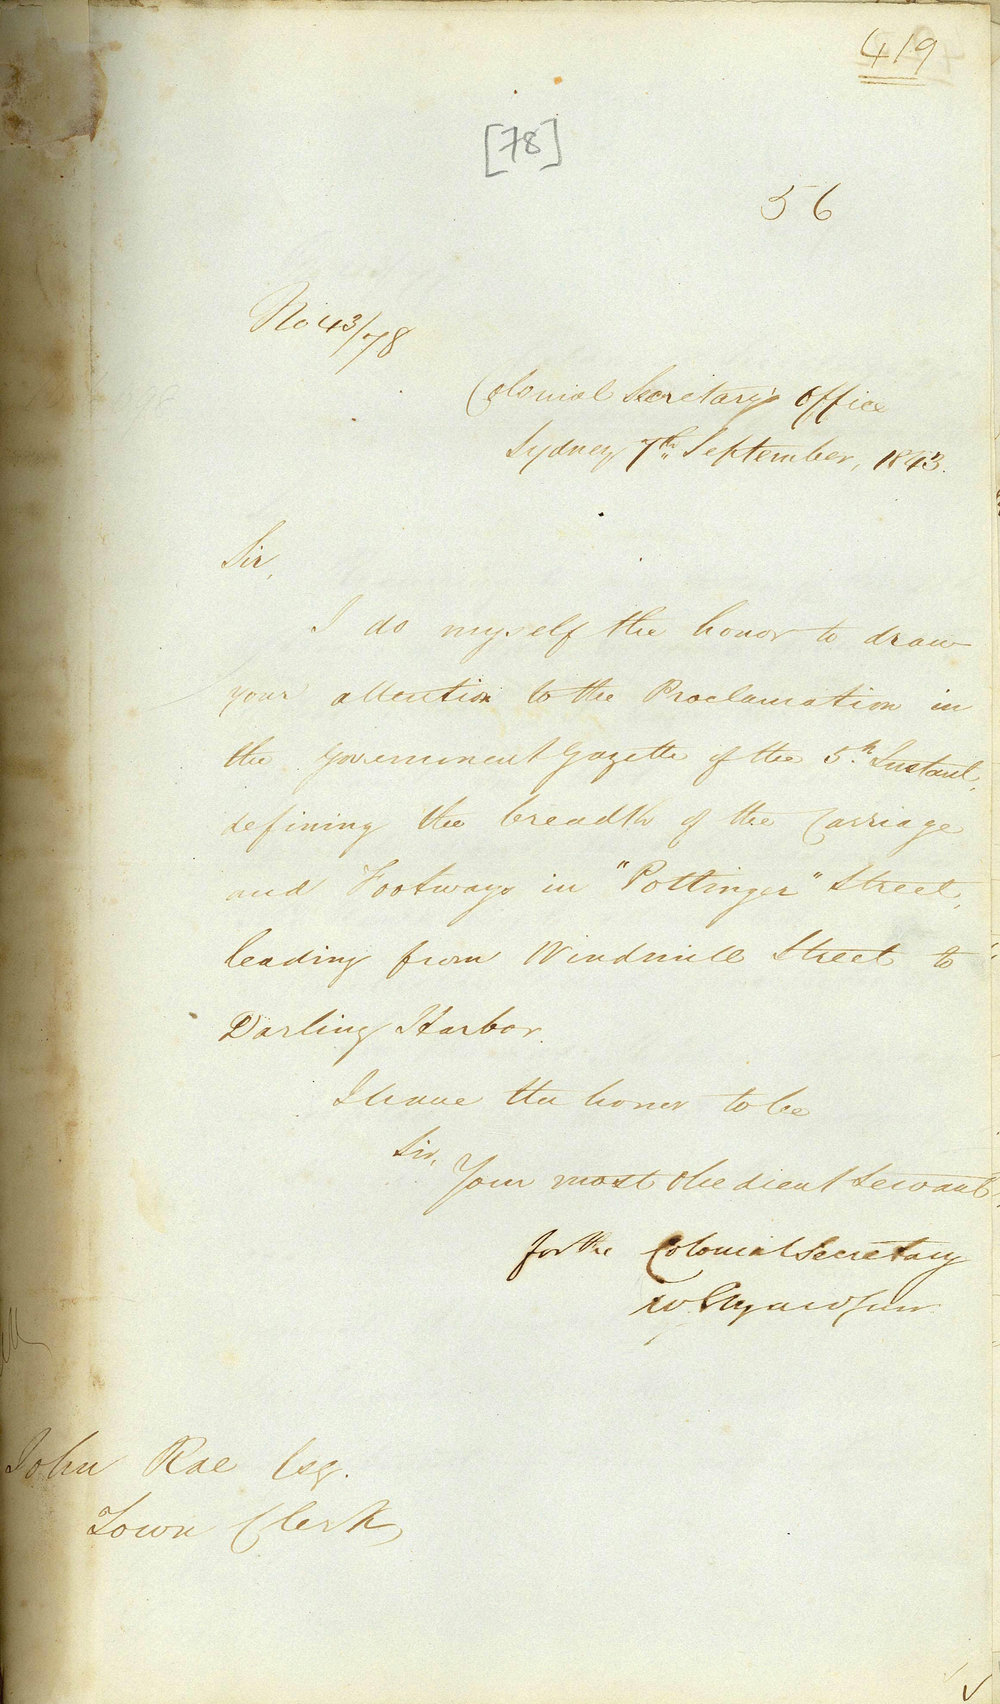 419
[78]
56
No 43/78
Colonial Secretary's Office
Sydney 7th September, 1843.
Sir,
I do myself the honor to draw
your attention to the Proclamation in
the Government Gazette of the 5th Instant,
defining the breadth of the Carriage
and Footways in "Pottinger" Street,
leading from Windmill Street to
Darling Harbor.
I have the honor to be
Sir,
Your most obedient Servant,
for the Colonial Secretary
W. Elyard Junr
John Rae Esq.
Town Clerk